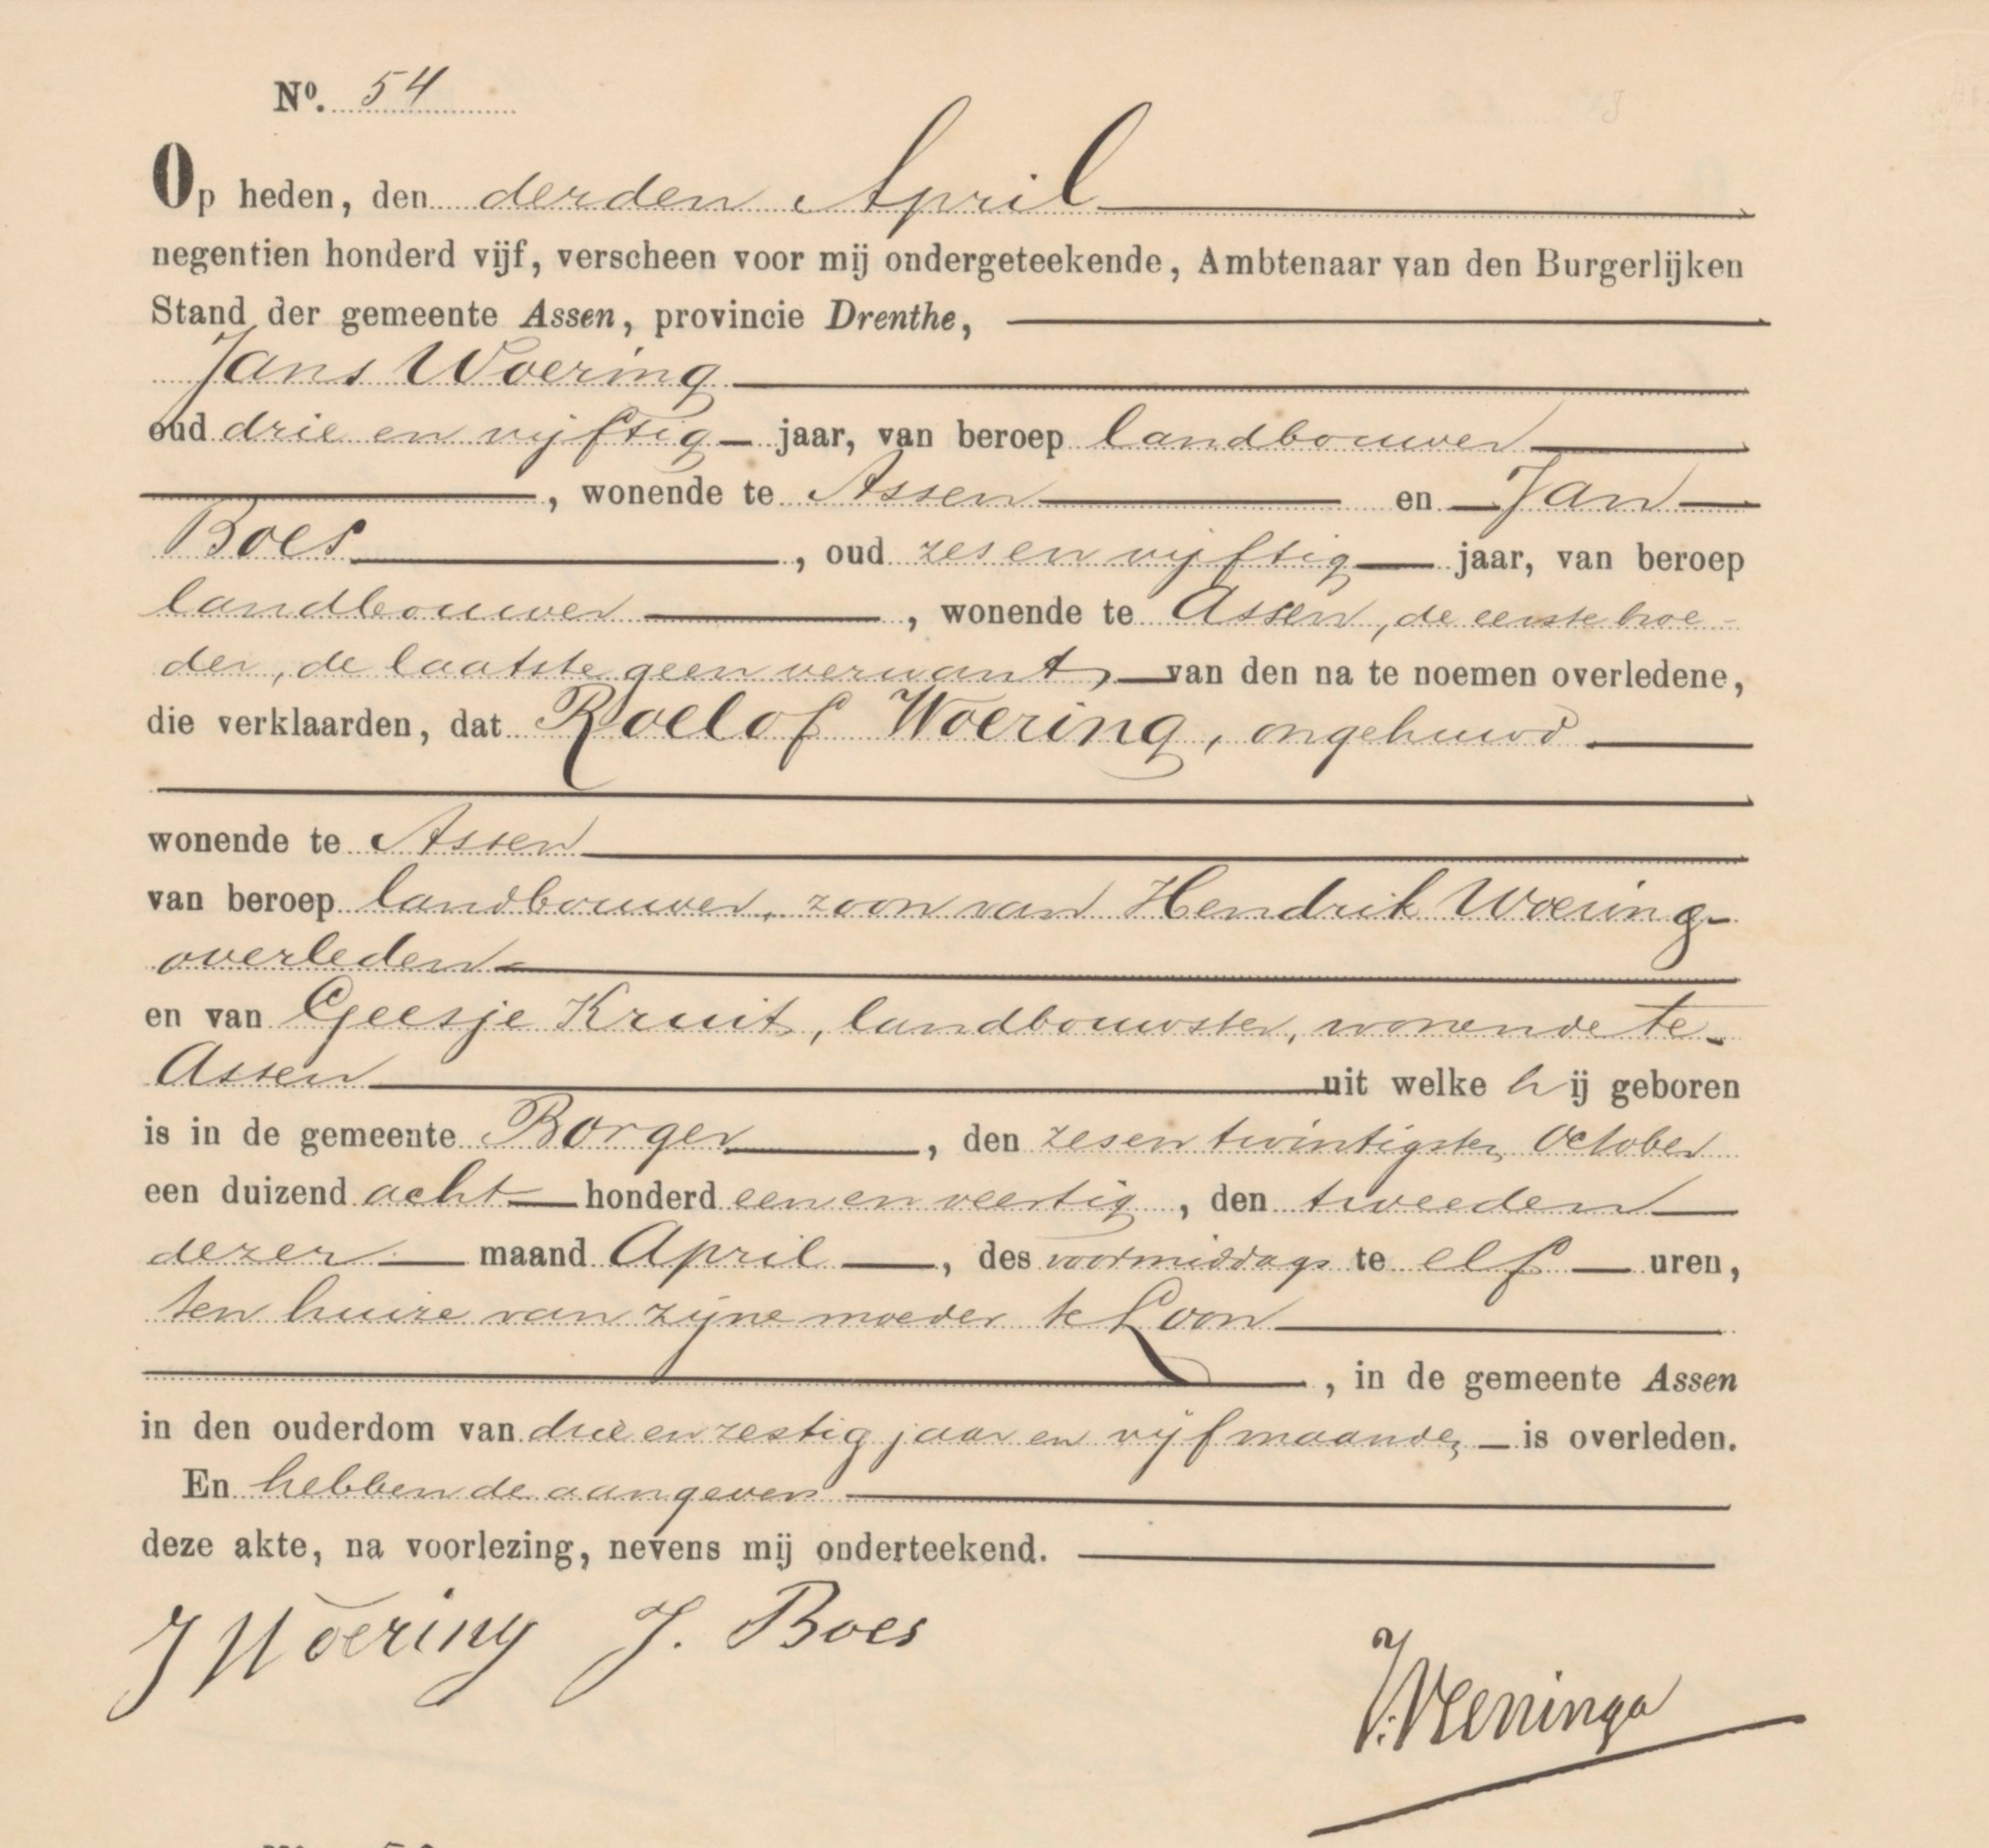 Nº. 54
Op heden, den derden April
negentien honderd vijf, verscheen voor mij ondergeteekende, Ambtenaar van den Burgerlijken
Stand der gemeente Assen, provincie Drenthe,
Jans Woering
oud drie en vijftig jaar, van beroep landbouwer
, wonende te Assen en Jan
Boes, oud zes en vijftig jaar, van beroep
landbouwer, wonende te Assen, de eerste broe-
der, de laatste geen verwant, van den na te noemen overledene,
die verklaarden, dat Roelof Woering, ongehuwd
wonende te Assen
van beroep landbouwer, zoon van Hendrik Woering
overleden
en van Geesje Kruit, landbouwster, wonende te
Assen uit welke hij geboren
is in de gemeente Borger, den zesentwintigsten October
een duizend acht honderd een en veertig, den tweeden
dezer maand April, des voormiddags te elf uren,
ten huize van zijne moeder te Loon
, in de gemeente Assen
in den ouderdom van drie en zestig jaar en vijf maanden is overleden.
En hebben de aangevers
deze akte, na voorlezing, nevens mij onderteekend.
J Woering J. Boes